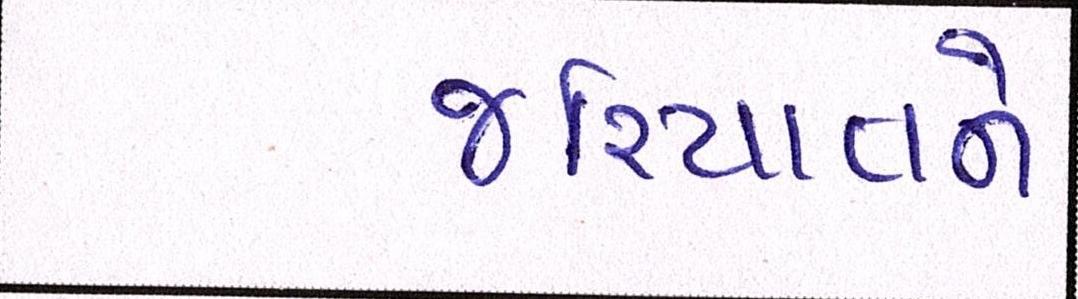 જરિયાતને